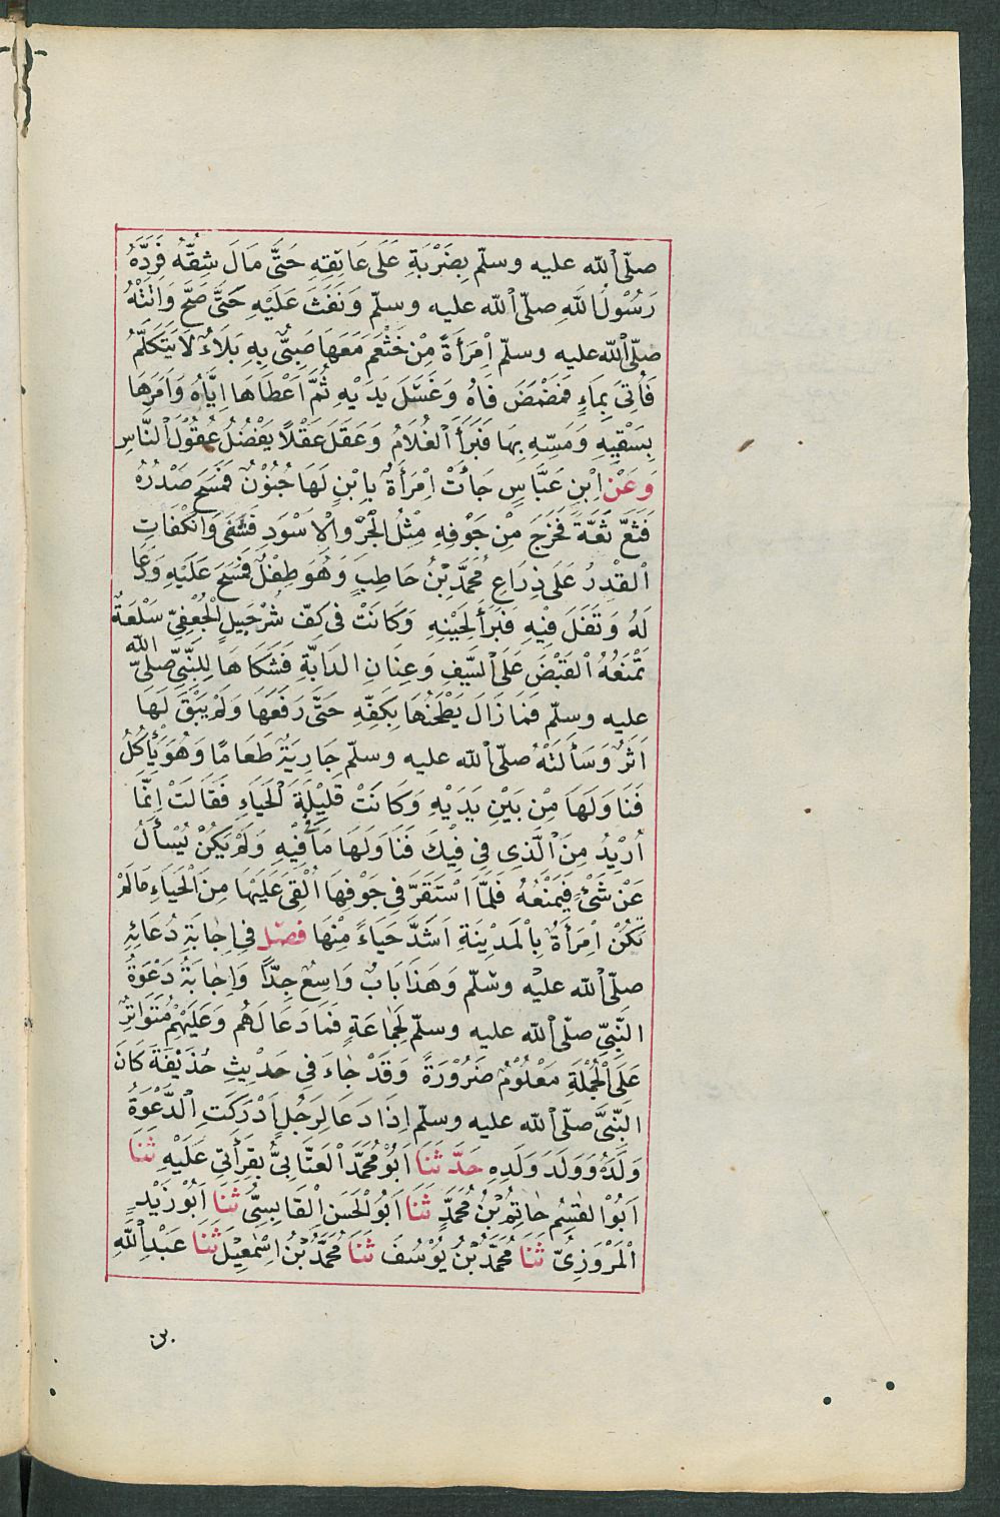 صلّى الله عليه وسلّم بِضَرْبَةٍ عَلَى عَاتِقِهِ حَتَّى مَالَ شِقُّهُ فَرَدَّهُ
رَسُوْلُ اللهِ صلّى الله عليه وسلّم وَنَفَثَ عَلَيْهِ حَتَّى صَحَّ وَاتَتْهُ
صلّى الله عليه وسلّم اِمْرَأَةٌ مِنْ خَثْعَمَ مَعَهَا صَبِىٌّ بِهِ بَلَاءٌ لَا يَتَكَلَّمُ
فَأُتِىَ بِمَاءٍ فَمَضْمَضَ فَاهُ وَغَسَلَ يَدَيْهِ ثُمَّ اَعْطَاهَا اِيَّاهُ وَاَمَرَهَا
بِسَقْيِهِ وَمَسِّهِ بِهَا فَبَرَأَ الْغُلَامُ وَعَقَلَ عَقْلًا يَفْضُلُ عُقُوْلَ النَّاسِ
وَعَنْ اِبْنِ عَبَّاسٍ جَاءَتْ اِمْرَأَةٌ بِاِبْنٍ لَهَا جُنُوْنٌ فَمَسَحَ صَدْرَهُ
فَثَعَّ ثَعَّةً فَخَرَجَ مِنْ جَوْفِهِ مِثْلُ الْجَرْوِ الْاَسْوَدِ فَشُفِىَ وَانْكَفَاتِ
الْقِدْرُ عَلَى ذِرَاعِ مُحَمَّدِ بْنِ حَاطِبٍ وَهُوَ طِفْلٌ فَمَسَحَ عَلَيْهِ وَدَعَا
لَهُ وَتَفَلَ فِيْهِ فَبَرَأَ لِحِيْنِهِ وَكَانَتْ فِى كَفِّ شُرَحْبِيلِ الْجُعْفِىِّ سَلْعَةٌ
تَمْنَعُهُ الْقَبْضَ عَلَى السَّيْفِ وَعِنَانِ الدَابَّةِ فَشَكَاهَا لِلنَّبِىِّ صلىّ الله
عليه وسلّم فَمَا زَالَ يَطْحَنُهَا بِكَفِّهِ حَتَّى رَفَعَهَا وَلَمْ يَبْقَ لَهَا
اَثَرٌ وَسَاَلَتْهُ صلّى الله عليه وسلّم جَارِيَةٌ طَعَامًا وَهُوَ يَأْكُلُ
فَنَاوَلَهَا مِنْ بَيْنِ يَدَيْهِ وَكَانَتْ قَلِيْلَةَ الْحَيَاءِ فَقَالَتْ اِنَّمَا
اُرِيْدُ مِنَ الَّذِى فِى فِيْكَ فَنَاوَلَهَا مَا فِى فِيْهِ وَلَمْ يَكُنْ يُسْأَلُ
عَنْ شَىْءٍ فَيَمْنَعُهُ فَلَمَّا اسْتَقَرَّ فِى جَوْفِهَا اُلْقِىَ عَلَيْهَا مِنَ الْحَيَاءِ مَا لَمْ
تَكُنْ اِمْرَأَةٌ بِالْمَدِيْنَةِ اَشَدَّ حَيَاءً مِنْهَا فصل فِى اِجَابَةِ دُعَائِهِ
صلّى الله عليْه وسَلّم وَهَذَا بَابٌ وَاسِعٌ جِدًّا وَاِجَابَةُ دَعْوَةِ
النَّبِىِّ صلّى الله عليه وسلّم لِجَمَاعَةٍ فَمَا دَعَا لَهُم وَعَلَيْهِمْ مُتَوَاتِرٌ
عَلَى الْجُمْلَةِ مَعْلُوْمٌ ضَرُوْرَةً وَقَدْ جَاءَ فِى حَدِيْثِ حُذَيْفَةَ كَانَ
النَّبِىُّ صلّى الله عليه وسلّم اِذَا دَعَا لِرَجُلٍ اَدْرَكَتِ الدَّعْوَةُ
وَلَدَهُ وَوَلَدَ وَلَدِهِ حَدَّثَنَا اَبُوْ مُحَمَّدٍ الْعَتَّابِىُّ بِقِرَأَتِى عَلَيْهِ ثَنَا
اَبُوْ الْقٰسِمِ حَاتِمُ بْنُ مُحَمَّدٍ ثَنَا اَبُو الْحَسَنِ الْقَابِسِىُّ ثَنَا اَبُوْ زَيْدٍ
الْمَرْوَزِىُّ ثَنَا مُحَمَّدُ بْنُ يُوْسُفَ ثَنَا مُحَمَّدُ بْنُ اِسْمٰعِيْلَ ثَنَا عَبْدُ اللهِ
بن